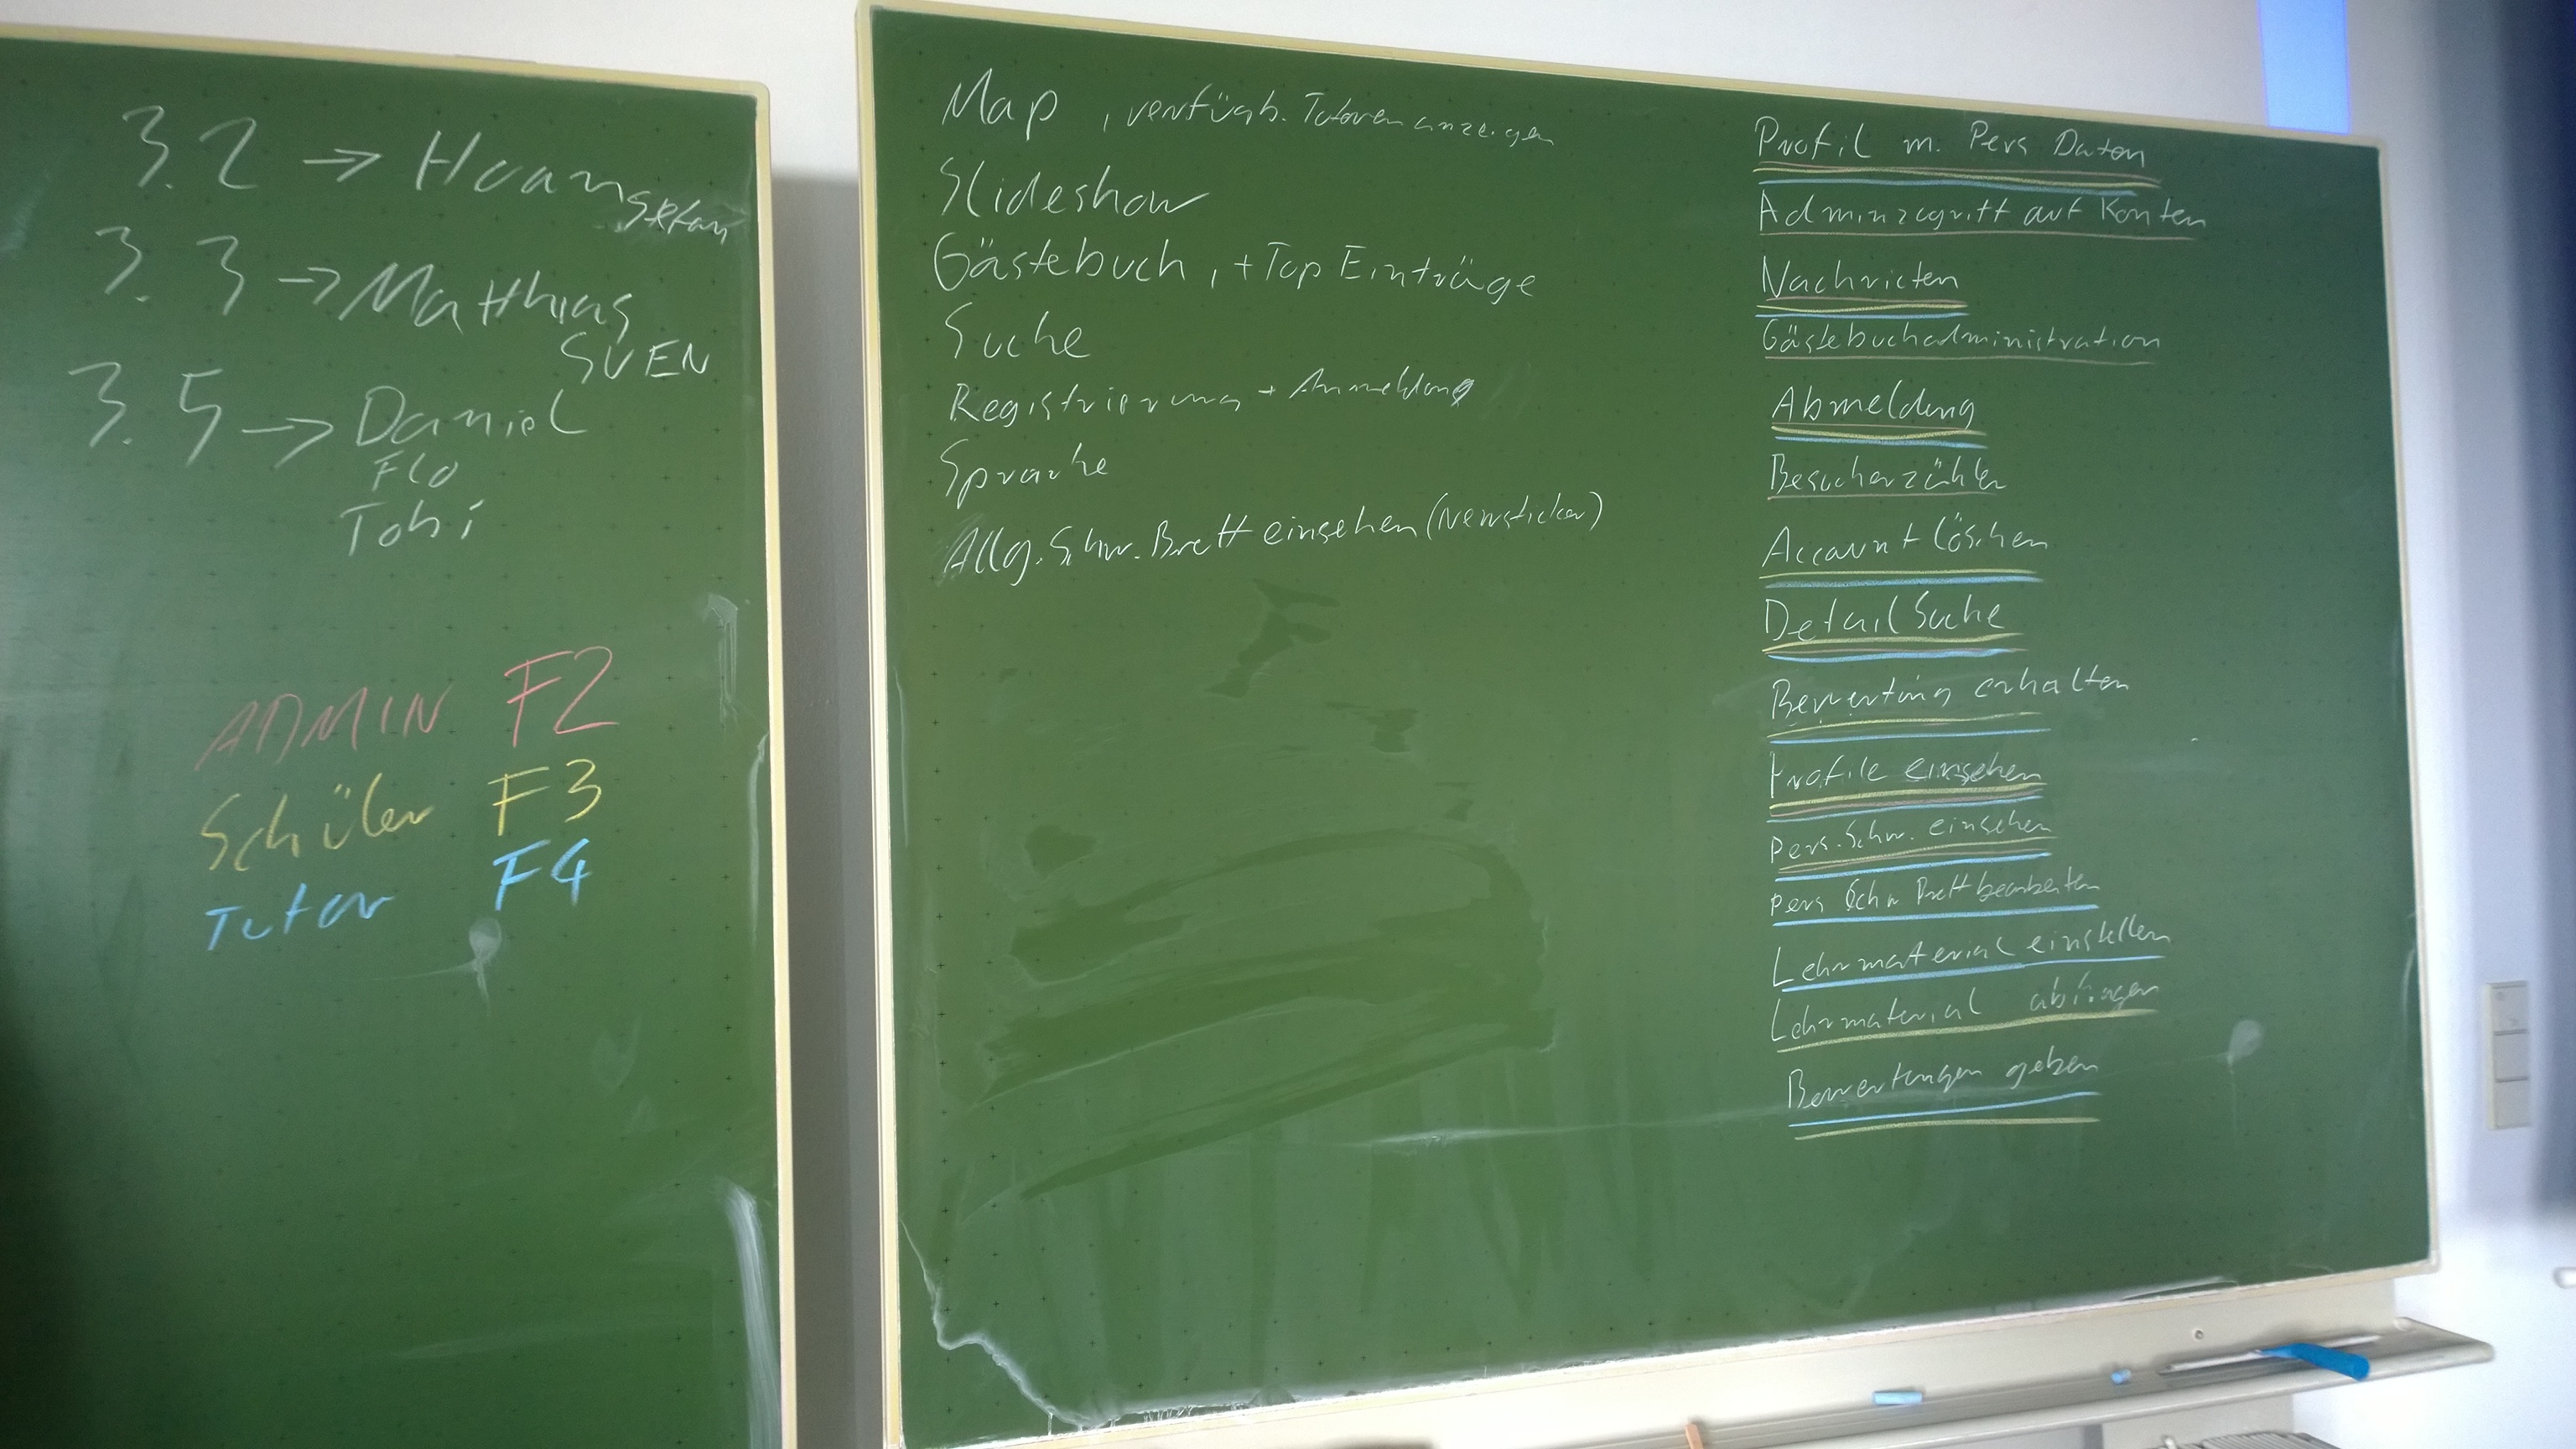 3.2 → Hoang
Stefan
3.3 → Matthias
SVEN
3.5 → Daniel
Flo
Tobi
ADMIN F2
Schüler F3
Tutor F4
Map , verfügb. Tutoren anzeigen
Slideshow
Gästebuch, + Top Einträge
Suche
Registrierung + Anmeldung
Sprache
Allg. Schw. Brett einsehen (Newsticker)
Profil m. Pers Daten
Adminzugriff auf Konten
Nachricten
Gästebuchadministration
Abmeldung
Besucherzähler
Account löschen
Detail Suche
Bewertung erhalten
Profile einsehen
Pers. Schw. einsehen
Pers Schw Brett bearbeiten
Lehrmaterial einstellen
Lehrmaterial abfragen
Bewertungen geben